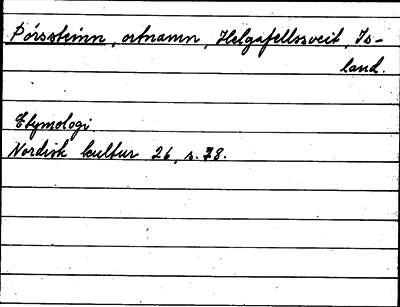 Þórssteinn, ortnamn, Helgafellssveit, Is-
land.
Etymologi.
Nordisk kultur 26, s. 78.